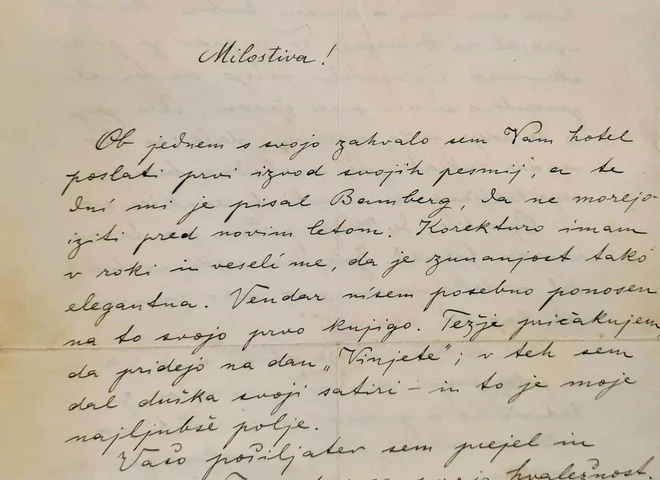 Milostiva!
Ob jednem s svojo zahvalo sem Vam hotel
poslati prvi izvod svojih pesmij, a te
dni mi je pisal Bamberg, da ne morejo
iziti pred novim letom. Korekturo imam
v roki in veseli me, da je zunanjost tako
elegantna. Vendar nisem posebno ponosen
na to svojo prvo knjigo. Težje pričakujem
da pridejo na dan „Vinjete“; v teh sem
dal duška svoji satiri – in to je moje
najljubše polje.
Vašo pošiljatev sem prejel in
hvaležnost.